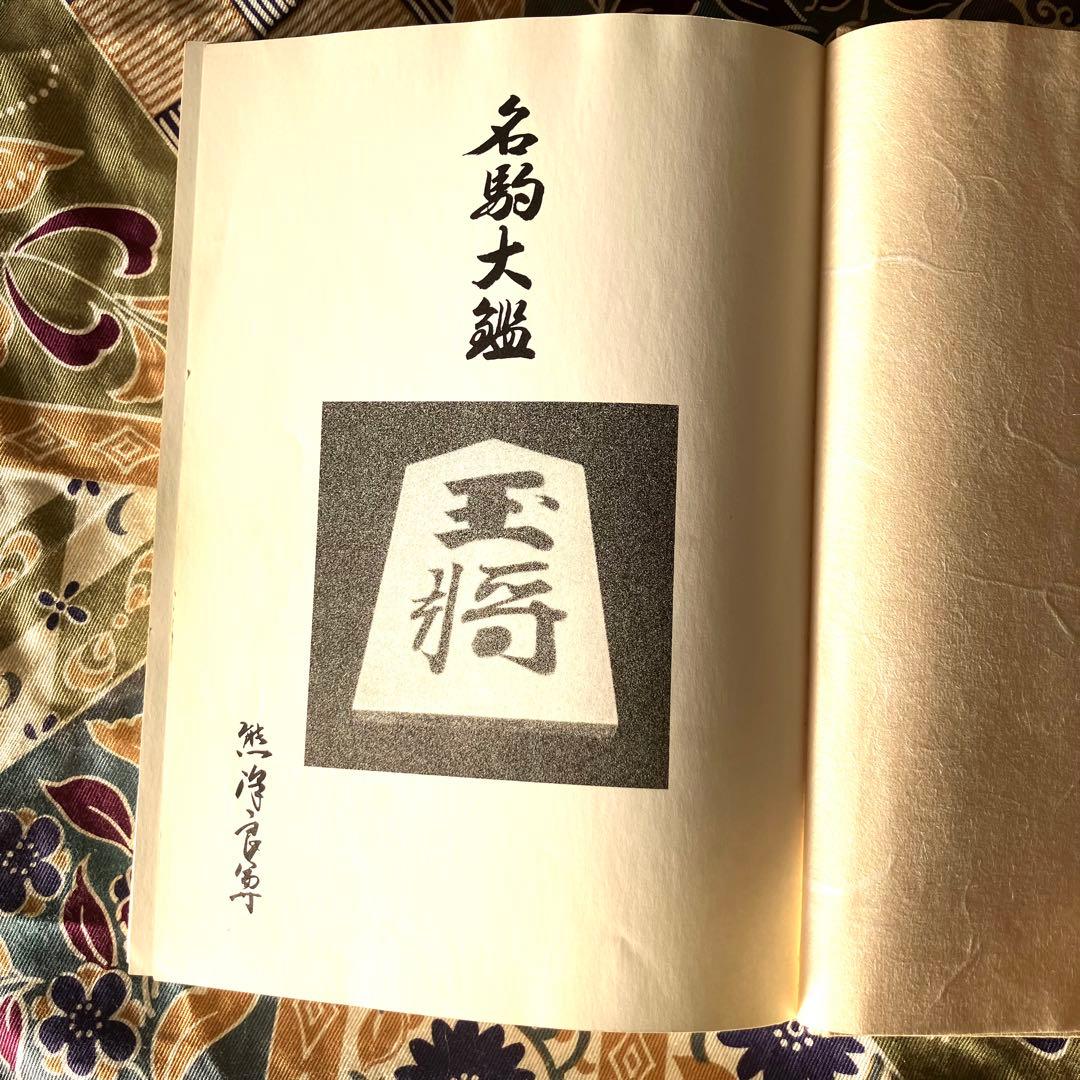 名駒大鑑
玉將
熊澤良尊